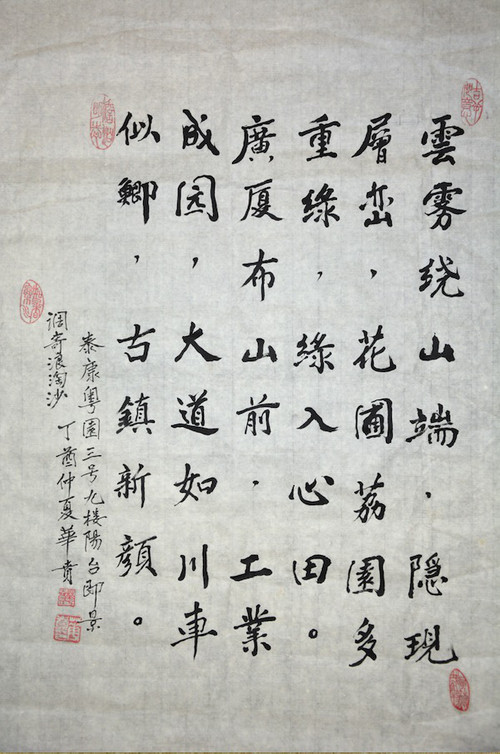 雲雾绕山端，隐現
層峦，花圃荔園多
重綠，綠入心田。
廣厦布山前，工業
成园，大道如川車
似鯽，古鎮新顔。
泰康粤園三号九楼陽台即景
調寄浪淘沙 丁酋仲夏華貴